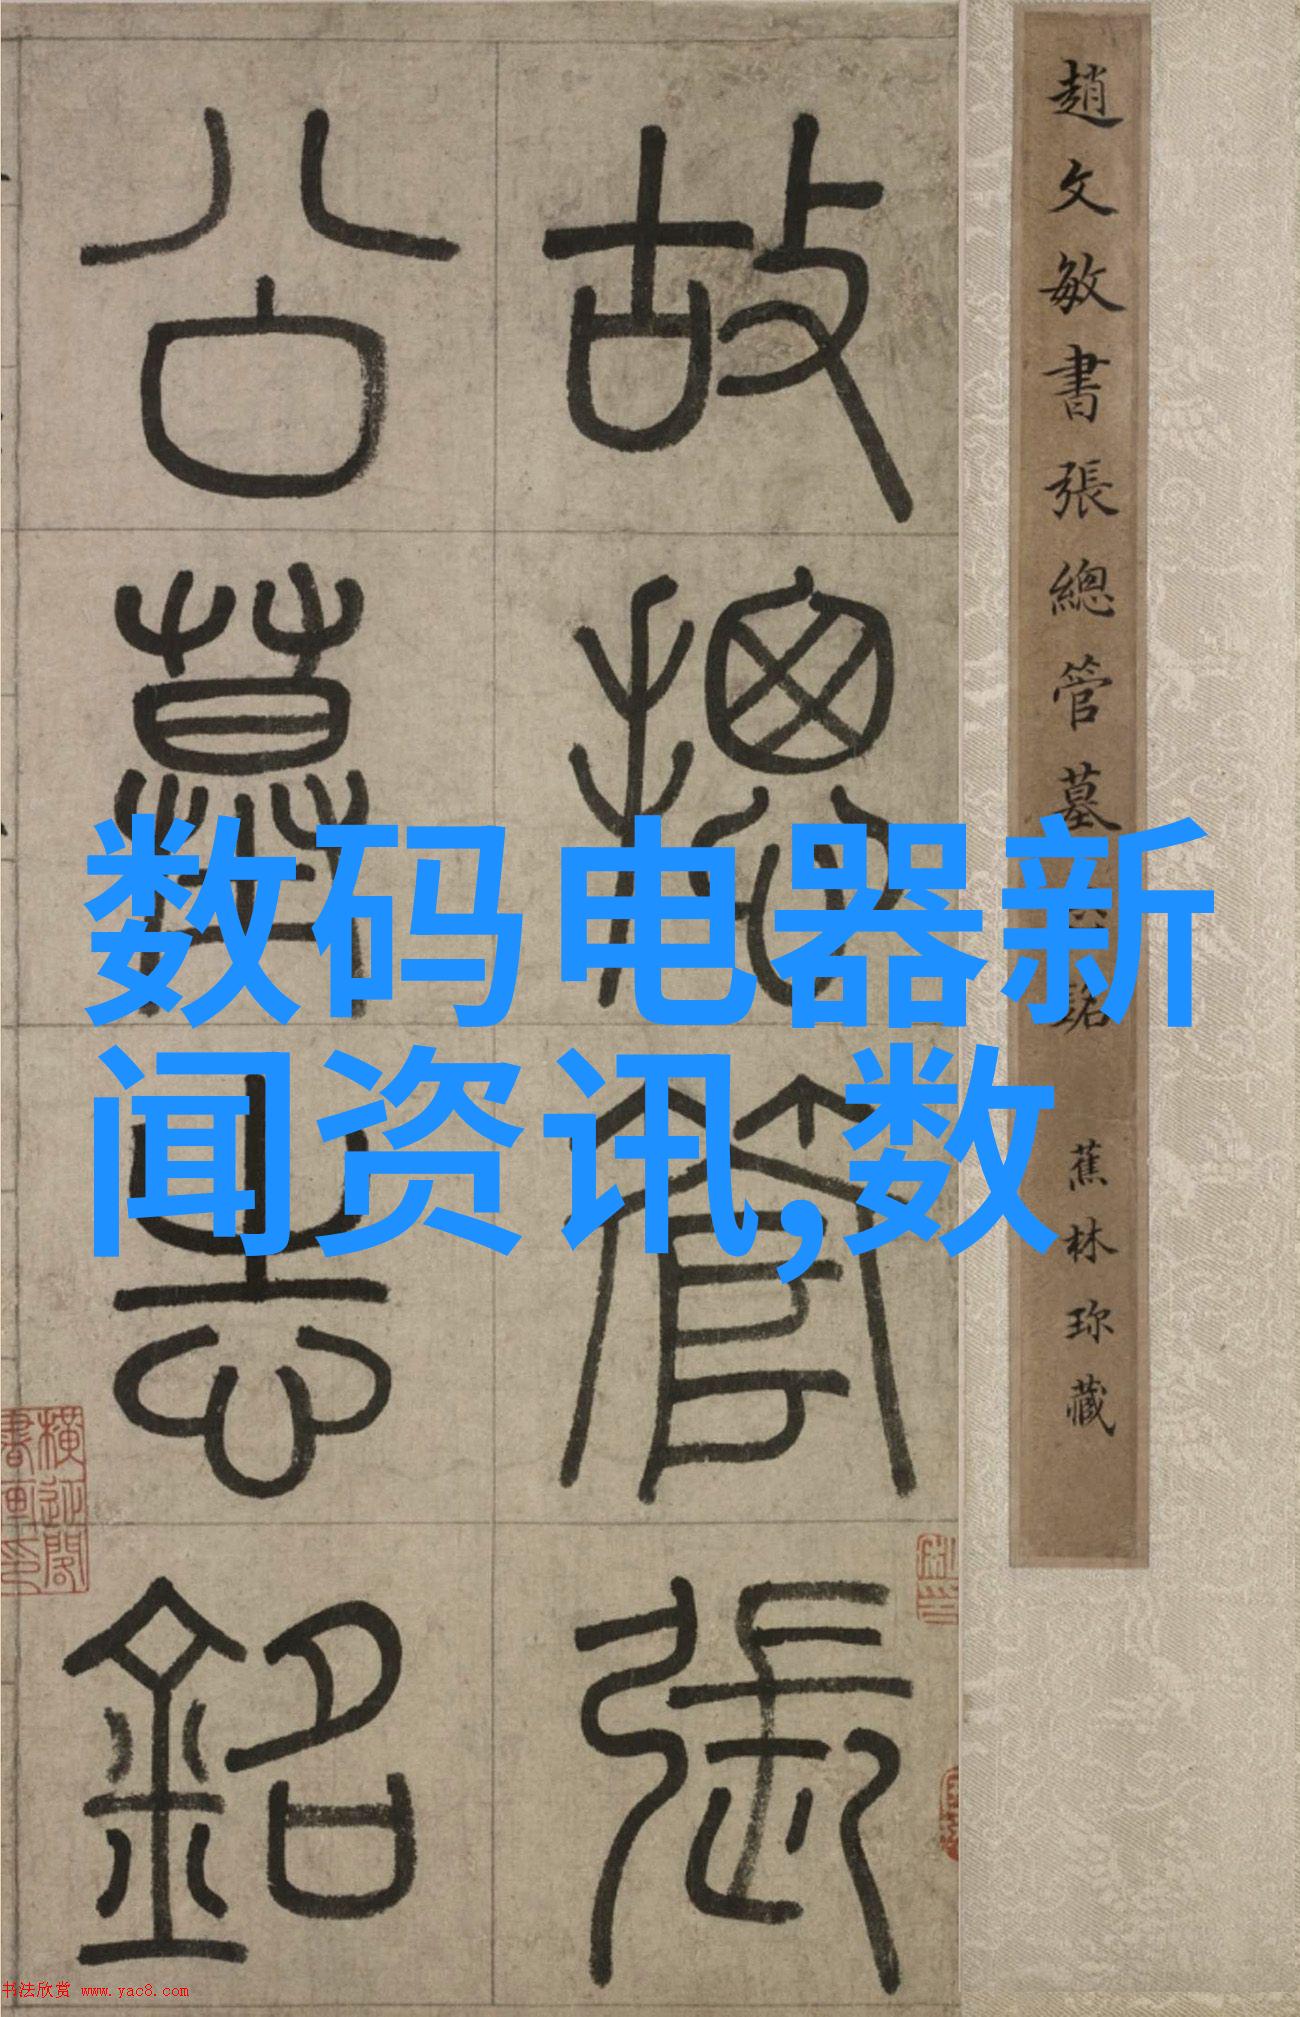 趙文敏書張總管墓誌銘 蕉林珍藏
故總管張
公墓志銘
数码电器新
闻资讯,数
书法欣赏 www.yac8.com